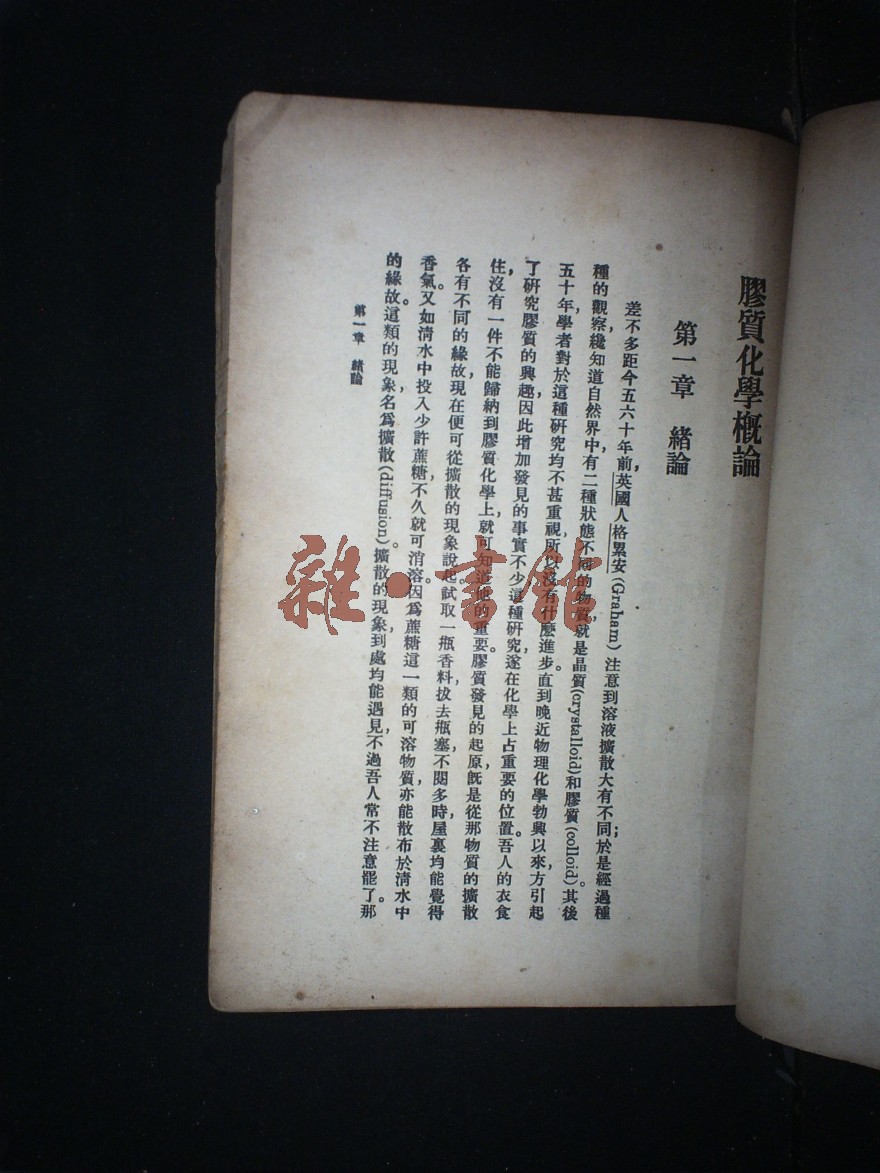 膠質化學概論
第一章 緒論
差不多距今五六十年前,英國人格異安(Graham)注意到溶液擴散大有不同;於是經過種
種的觀察,纔知道自然界中有二種狀態不同的物質,就是晶質(crystalloid)和膠質(colloid)。其後
五十年,學者對於這種研究均不甚重視,所以沒有什麼進步。直到晚近物理化學勃興以來,方引起
了研究膠質的興趣,因此增加發見的事實不少,這種研究,遂在化學上占重要的位置。吾人的衣食
住,沒有一件不能歸納到膠質化學上,就可知道他的重要。膠質發見的起原,既是從那物質的擴散
各有不同的緣故,現在便可從擴散的現象說起。試取一瓶香料,拔去瓶塞,不閱多時,屋裏均能覺得
香氣。又如清水中投入少許蔗糖,不久就可消溶。因爲蔗糖這一類的可溶物質,亦能散布於清水中
的緣故。這類的現象,名爲擴散(diffusion)。擴散的現象,到處均能遇見,不過吾人常不注意罷了。那
第一章 緒論
雜·書館